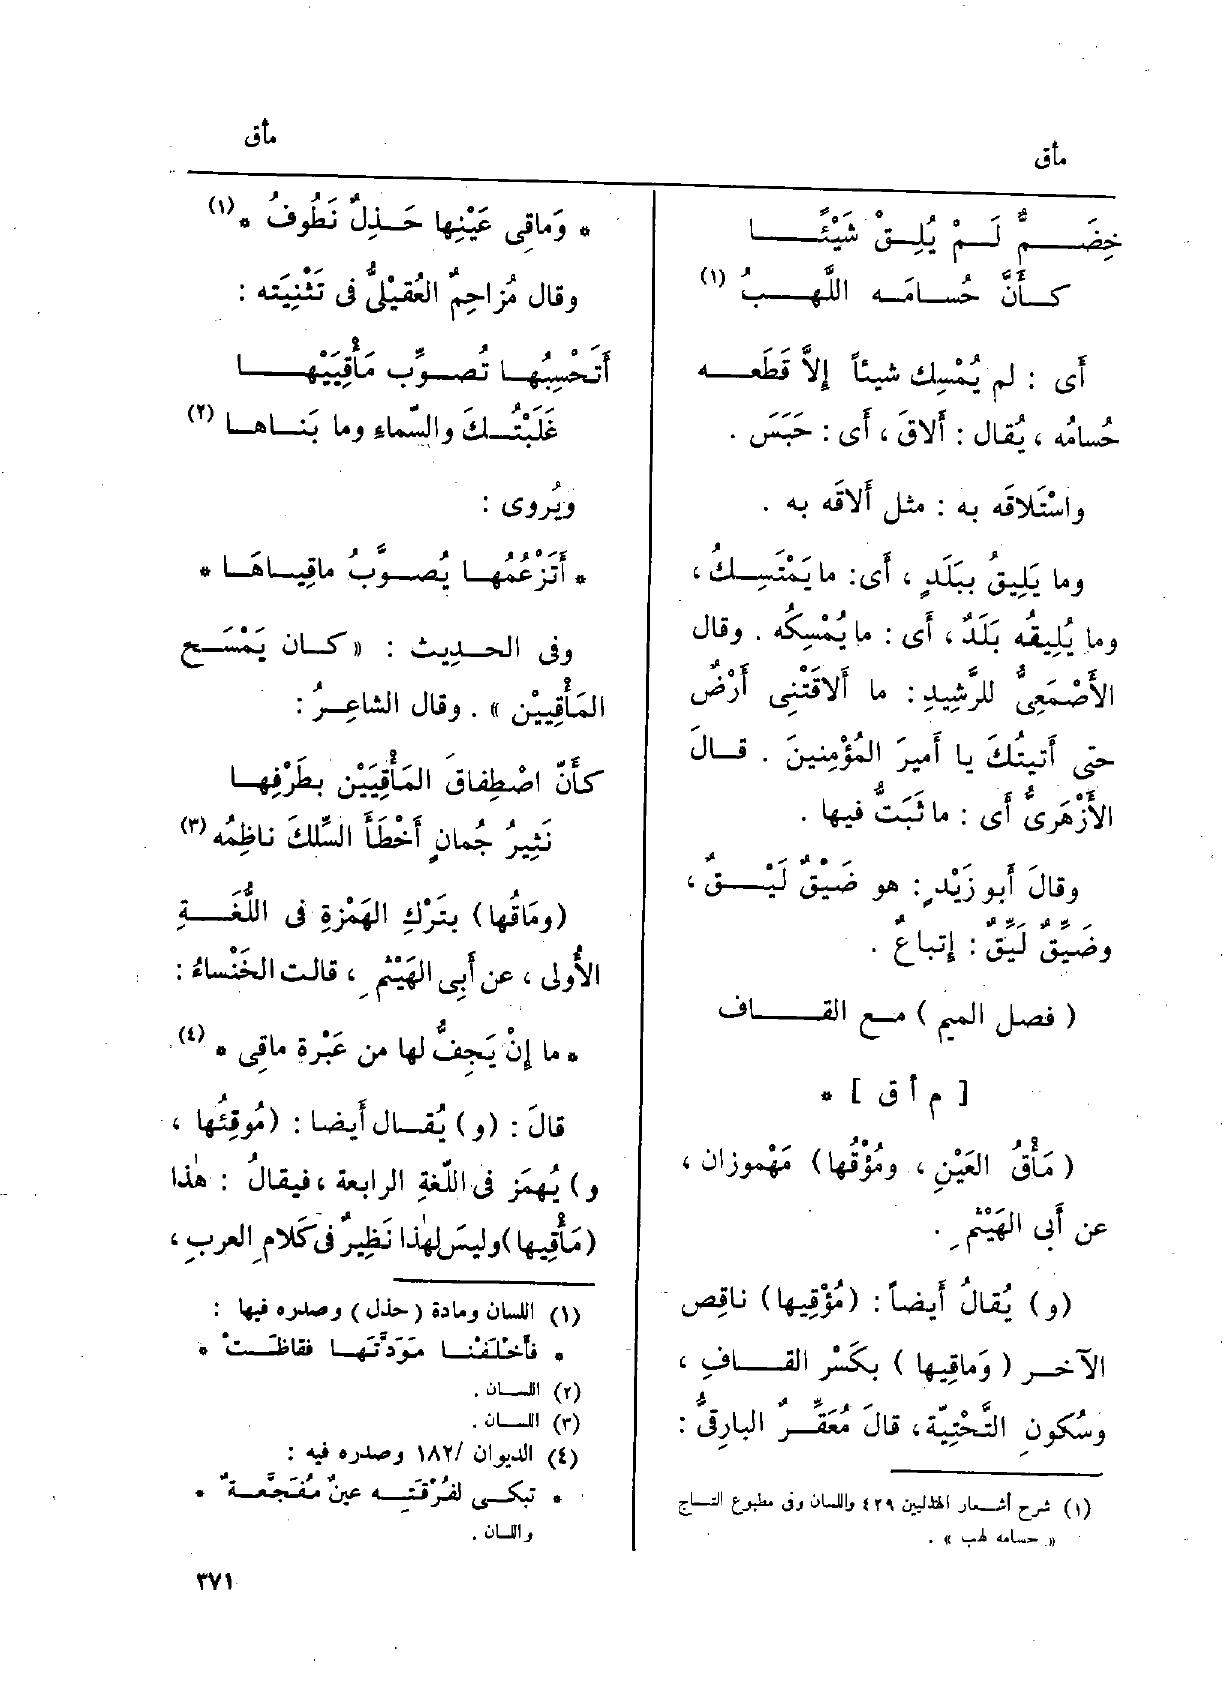 مأق
مأق
خِضَـــمٌّ لَـمْ يُلِـقْ شَيْئًــــا
كـأَنَّ حُسـامَـه اللَّهــبُ (١)
أَى : لم يُمْسِك شيئاً إِلاَّ قَطَعــه
حُسامُه ، يُقال : أَلاقَ ، أَى : حَبَسَ .
واسْتَلاقَه به : مثل أَلاقَه به .
وما يَلِيقُ ببَلَدٍ ، أَى: ما يَمْتَسِـكُ ،
وما يُلِيقُه بَلَدٌ ، أَى : ما يُمْسِكُه . وقال
الأَصْمَعِىُّ للرَّشِيدِ : ما أَلاقَتْنِى أَرْضٌ
حتى أَتيتُكَ يا أَميرَ المُؤْمِنينَ . قــالَ
الأَزْهَرِىُّ أَى : ما ثَبَتُّ فيها .
وقالَ أَبو زَيْدٍ : هو ضَيْقٌ لَيْــقٌ ،
وضَيِّقٌ لَيِّقٌ : إِتباعٌ .
( فصل الميم ) مـع القــــاف
[ م أ ق ] *
( مَأْقُ العَيْنِ ، ومُؤْقُها ) مَهْموزان ،
عن أَبى الهَيْثمِ .
(و) يُقالُ أَيضاً : (مُؤْقِيها) ناقِص
الآخــر ( وَماقِيها ) بكَسْر القــافِ ،
وسُكونِ التَّحْتِيّة ، قالَ مُعَقِّــرٌ البارِقىُّ :
(١) شرح أشـعار الهذليين ٤٢٩ واللسان وفى مطبوع التــاج
« حسامه لهب » .
* وَماقِى عَيْنِها حَـذِلٌ نَطُوفُ * (١)
وقال مُزاحِمٌ العُقيْلىُّ فى تَثْنِيَته :
أَتَحْسِبُهـا تُصـوِّب مَأْقِيَيْهــــا
غَلَبْتُـكَ والسَّماءِ وما بَنـاهـا (٢)
ويُروى :
* أَتَزْعُمُهـا يُصــوَّبُ ماقِيـاهَـا *
وفى الحـديث : « كـان يَمْسَـح
المَأْقِيَيْن » . وقال الشاعِــرُ :
كأَنّ اصْطِفاقَ المَأْقِيَيْن بطَرْفِهـا
نَثِيرُ جُمانٍ أَخْطَأَ السِّلكَ ناظِمُه (٣)
(ومَاقُها) بتَرْكِ الهَمْزةِ فى اللُّغَــةِ
الأُولى ، عن أَبِى الهَيْثمِ ، قالت الخَنْساءُ :
* ما إِنْ يَجِفُّ لها من عَبْرة ماقِى * (٤)
قالَ : (و) يُقــال أَيضا : (مُوقِئُها ،
و) يُهمَز فى اللّغةِ الرابعة ، فيقالُ : هٰذا
(مَأْقِيها) وليسَ لهٰذا نَظِيرٌ فى كَلامِ العربِ ،
(١) اللسان ومادة ( حذل ) وصدره فيها :
* فأخْلَفْنــا مَوَدَّتَهــا فقاظَــتْ *
(٢) اللســان .
(٣) اللســان .
(٤) الديوان /١٨٢ وصدره فيه :
* تبكــى لفُرْقَتِــه عينٌ مُفَجَّعــة ٌ *
واللسان .
٣٧١